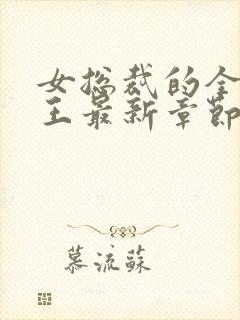 女总裁的全
王最新章节
慕流苏